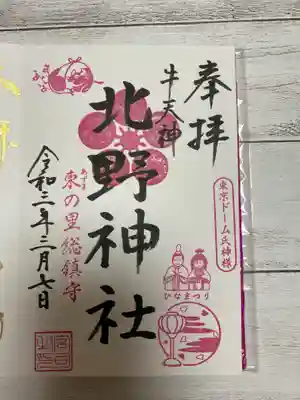 奉拝
牛天神
北野神社
東京ドーム氏神様
ひなまつり
東の里総鎮守
令和三年三月七日